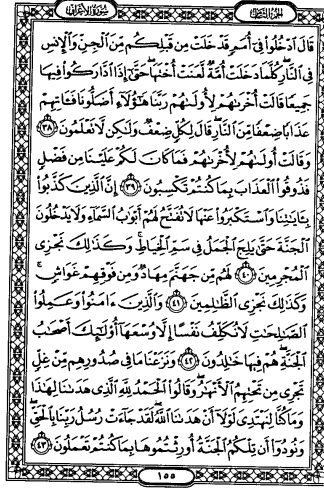 سورة الأعراف
الجزء الثامن
قَالَ ادْخُلُوا فِي أُمَمٍ قَدْ خَلَتْ مِن قَبْلِكُم مِّنَ الْجِنِّ وَالْإِنسِ
فِي النَّارِ كُلَّمَا دَخَلَتْ أُمَّةٌ لَّعَنَتْ أُخْتَهَا حَتَّىٰ إِذَا ادَّارَكُوا فِيهَا
جَمِيعًا قَالَتْ أُخْرَىٰهُمْ لِأُولَىٰهُمْ رَبَّنَا هَٰؤُلَاءِ أَضَلُّونَا فَـَٔاتِهِمْ
عَذَابًا ضِعْفًا مِّنَ النَّارِ قَالَ لِكُلٍّ ضِعْفٌ وَلَٰكِن لَّا تَعْلَمُونَ ٣٨
وَقَالَتْ أُولَىٰهُمْ لِأُخْرَىٰهُمْ فَمَا كَانَ لَكُمْ عَلَيْنَا مِن فَضْلٍ
فَذُوقُوا الْعَذَابَ بِمَا كُنتُمْ تَكْسِبُونَ ٣٩ إِنَّ الَّذِينَ كَذَّبُوا
بِـَٔايَٰتِنَا وَاسْتَكْبَرُوا عَنْهَا لَا تُفَتَّحُ لَهُمْ أَبْوَٰبُ السَّمَاءِ وَلَا يَدْخُلُونَ
الْجَنَّةَ حَتَّىٰ يَلِجَ الْجَمَلُ فِي سَمِّ الْخِيَاطِ وَكَذَٰلِكَ نَجْزِي
الْمُجْرِمِينَ ٤٠ لَهُم مِّن جَهَنَّمَ مِهَادٌ وَمِن فَوْقِهِمْ غَوَاشٍ
وَكَذَٰلِكَ نَجْزِي الظَّٰلِمِينَ ٤١ وَالَّذِينَ ءَامَنُوا وَعَمِلُوا
الصَّٰلِحَٰتِ لَا نُكَلِّفُ نَفْسًا إِلَّا وُسْعَهَا أُولَٰئِكَ أَصْحَٰبُ
الْجَنَّةِ هُمْ فِيهَا خَٰلِدُونَ ٤٢ وَنَزَعْنَا مَا فِي صُدُورِهِم مِّنْ غِلٍّ
تَجْرِي مِن تَحْتِهِمُ الْأَنْهَٰرُ وَقَالُوا الْحَمْدُ لِلَّهِ الَّذِي هَدَىٰنَا لِهَٰذَا
وَمَا كُنَّا لِنَهْتَدِيَ لَوْلَا أَنْ هَدَىٰنَا اللَّهُ لَقَدْ جَاءَتْ رُسُلُ رَبِّنَا بِالْحَقِّ
وَنُودُوا أَن تِلْكُمُ الْجَنَّةُ أُورِثْتُمُوهَا بِمَا كُنتُمْ تَعْمَلُونَ ٤٣
١٥٥